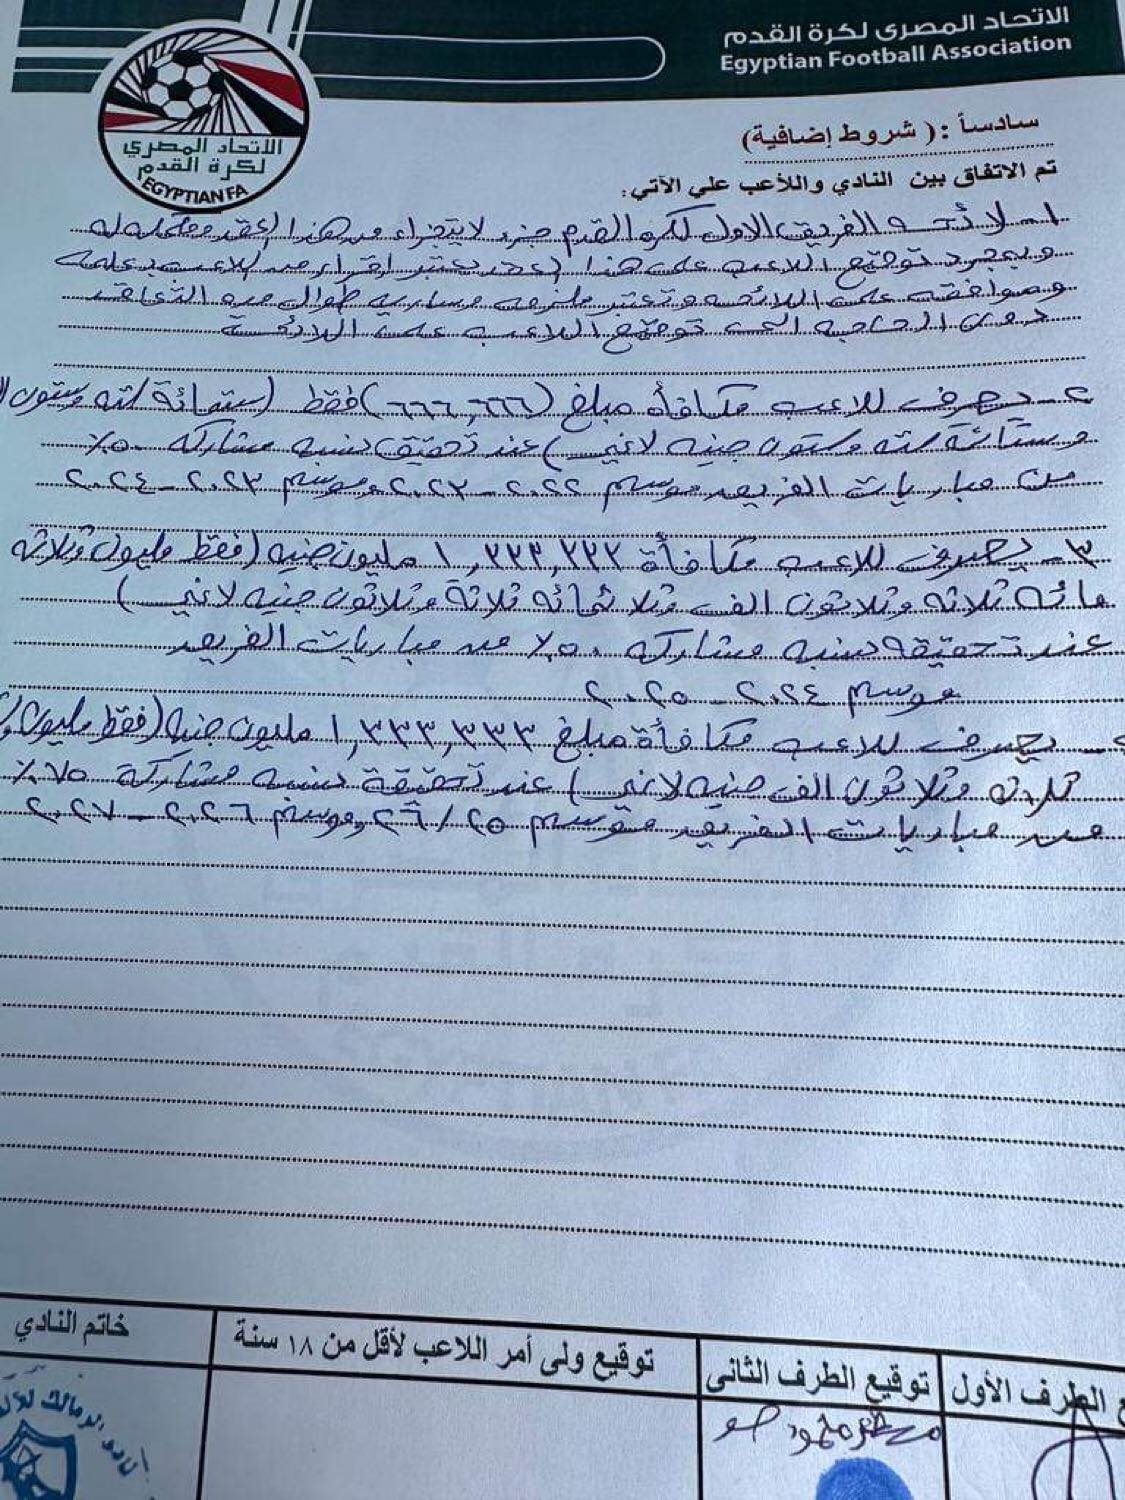 الاتحاد المصرى لكرة القدم
Egyptian Football Association
الاتحاد المصري
لكرة القدم
EGYPTIAN FA
سادساً : ( شروط إضافية)
تم الاتفاق بين النادي واللأعب علي الآتي:
١- لائحة الفريق الاول لكرة القدم جزء لايتجزاء من هذا العقد ومكمله له
وبمجرد توقيع اللاعب على هذا العقد يعتبر اقرار من اللاعب بعلمه
وموافقته على اللائحه وتعتبر ملزمه وساريه طوال مده التعاقد
دون الحاجه الى توقيع اللاعب على اللائحة
٢- يصرف للاعب مكافأة مبلغ (٦٦٦,٦٦٦) فقط (ستمائة سته وستون
وستمائة سته وستون جنيه لاغير) عند تحقيق نسبه مشاركه ٥٠٪
من مباريات الفريق موسم ٢٠٢٢-٢٠٢٣ وموسم ٢٠٢٣-٢٠٢٤
٣- يصرف للاعب مكافأة ١,٣٣٣,٣٣٣ مليون جنيه (فقط مليون وثلاثه
مائه ثلاثه وثلاثون الف وثلاثمائه ثلاثة وثلاثون جنيه لاغير)
عند تحقيقه نسبه مشاركه ٥٠٪ من مباريات الفريق
موسم ٢٠٢٤-٢٠٢٥
يصرف للاعب مكافأة مبلغ ١,٣٣٣,٣٣٣ مليون جنيه (فقط مليون
ثلاثه وثلاثون الف جنيه لاغير) عند تحقيقة نسبه مشاركة ٧٥٪
من مباريات الفريق موسم ٢٦/٢٥ وموسم ٢٠٢٦-٢٠٢٧
الطرف الأول
توقيع الطرف الثانى
توقيع ولى أمر اللاعب لأقل من ١٨ سنة
خاتم النادي
نادى الزمالك